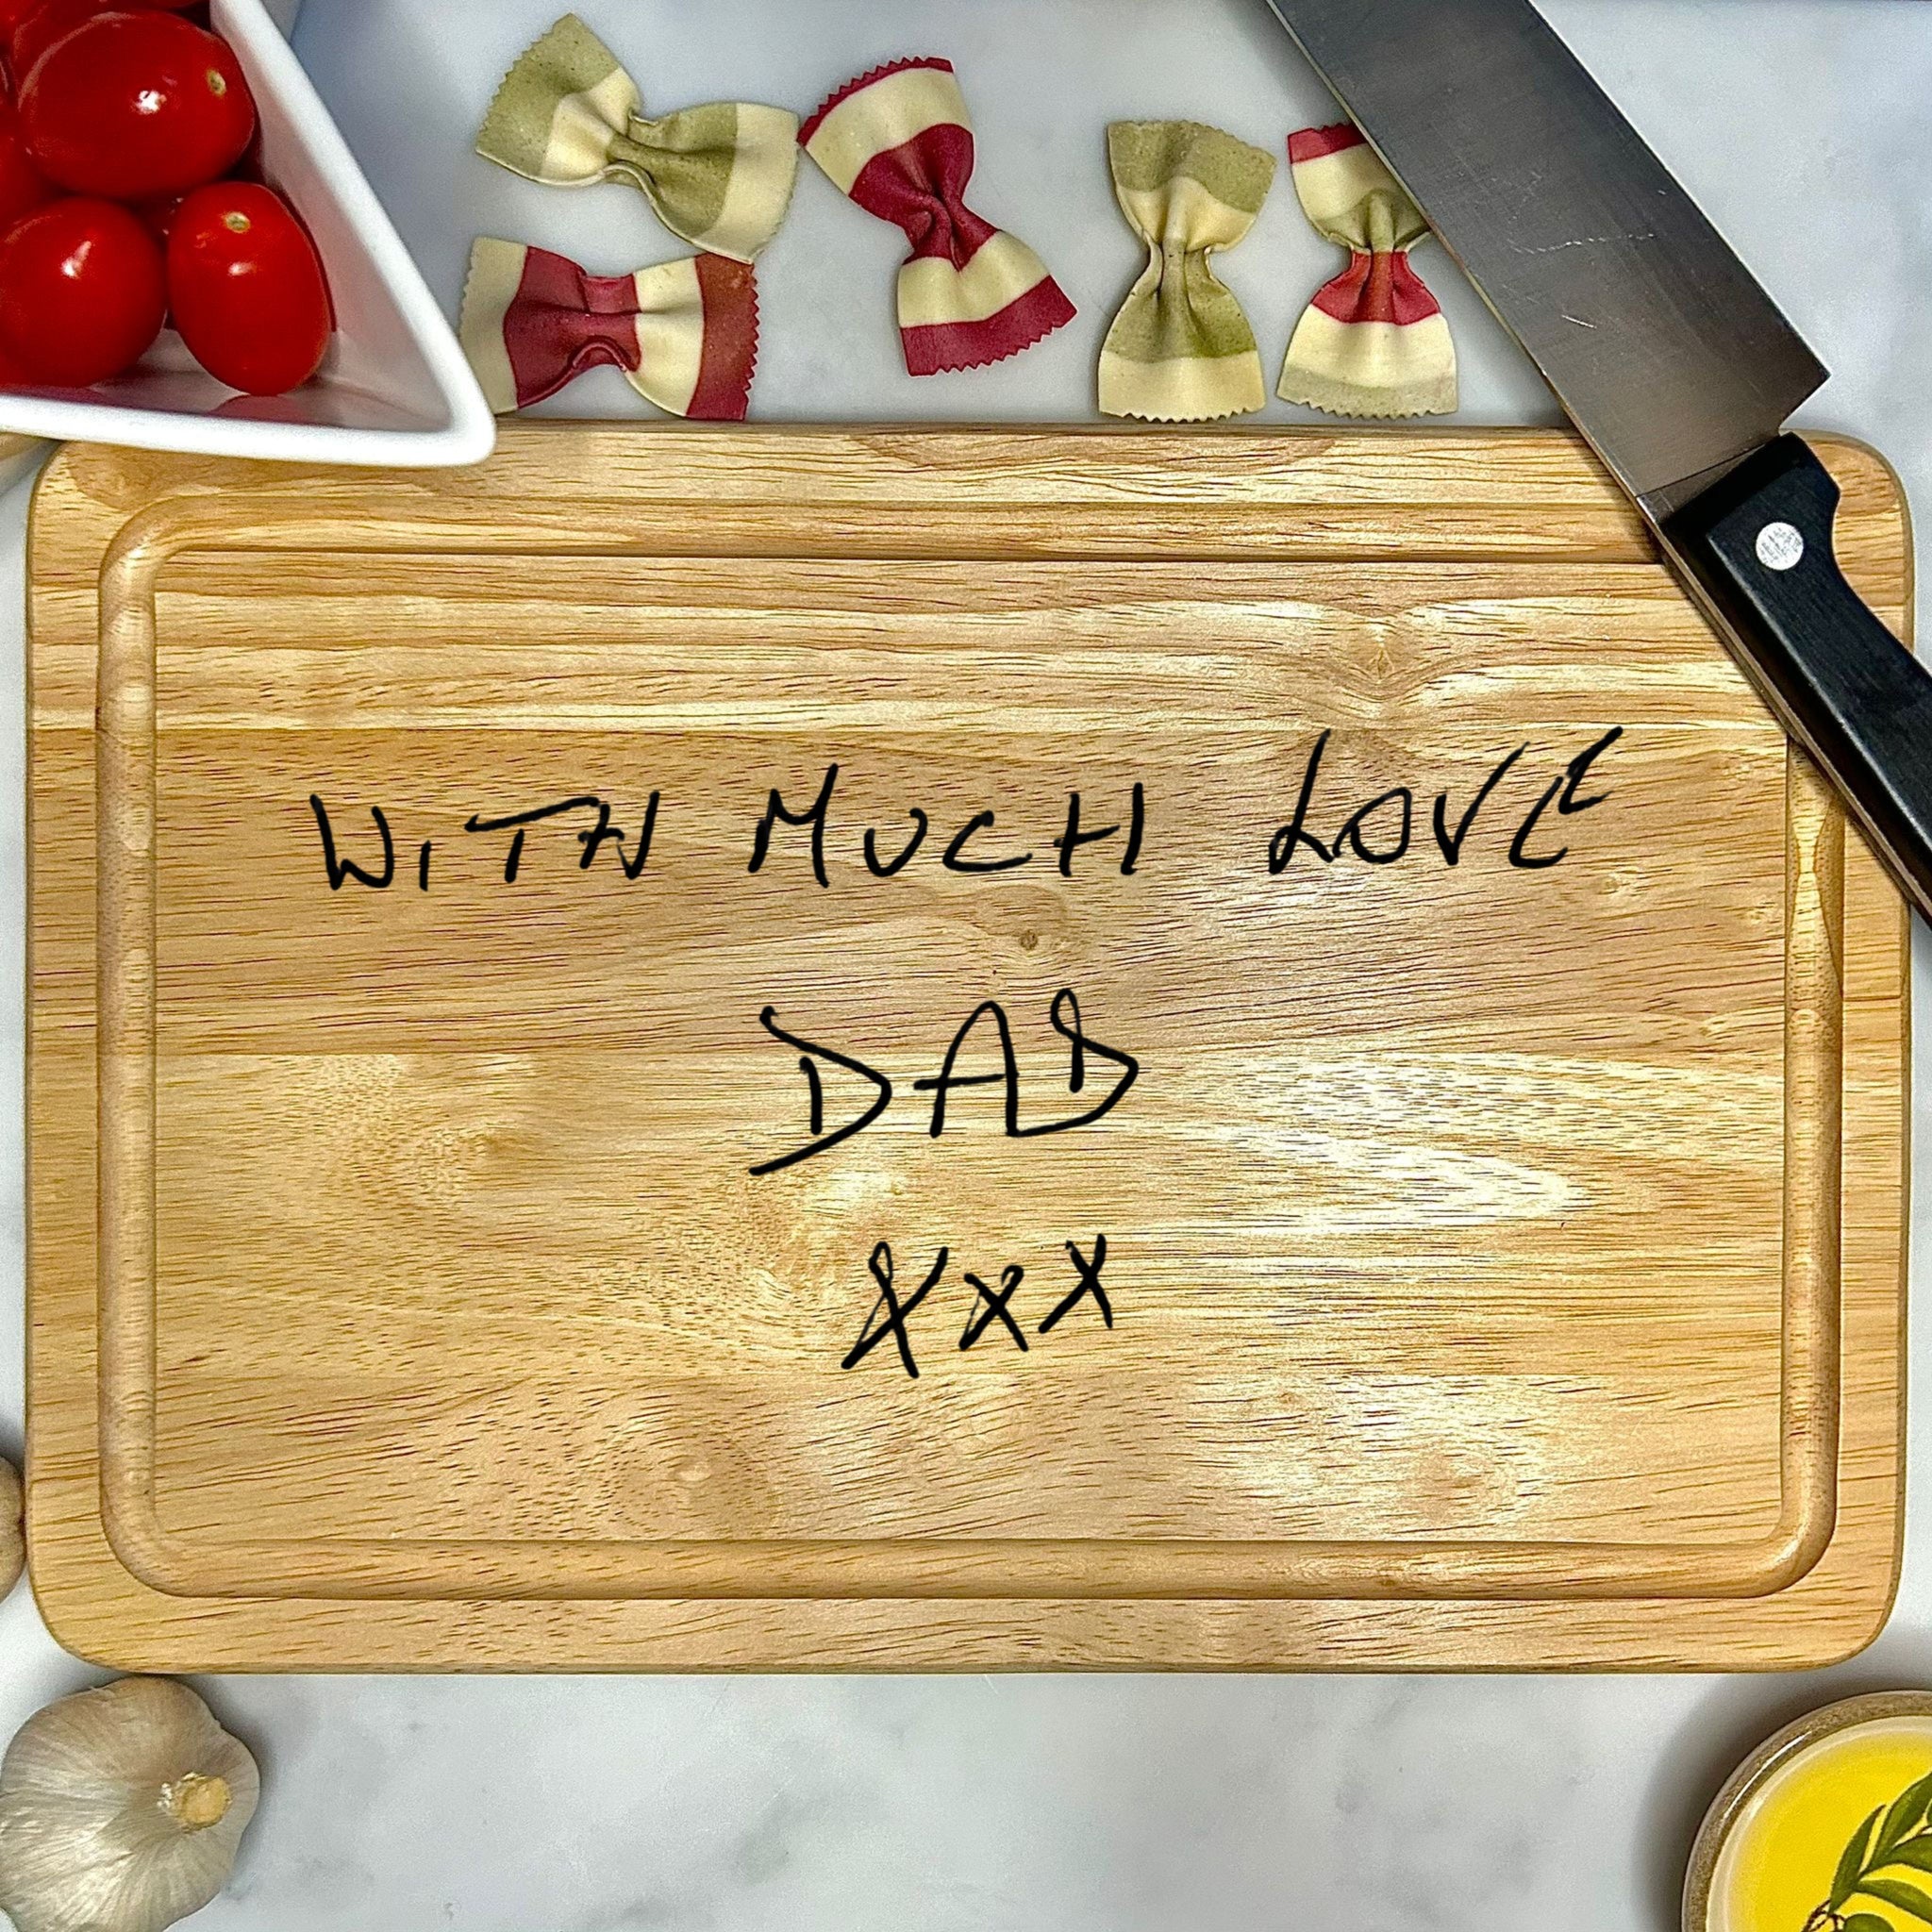 WITH MUCH LOVE
DAD
xxx